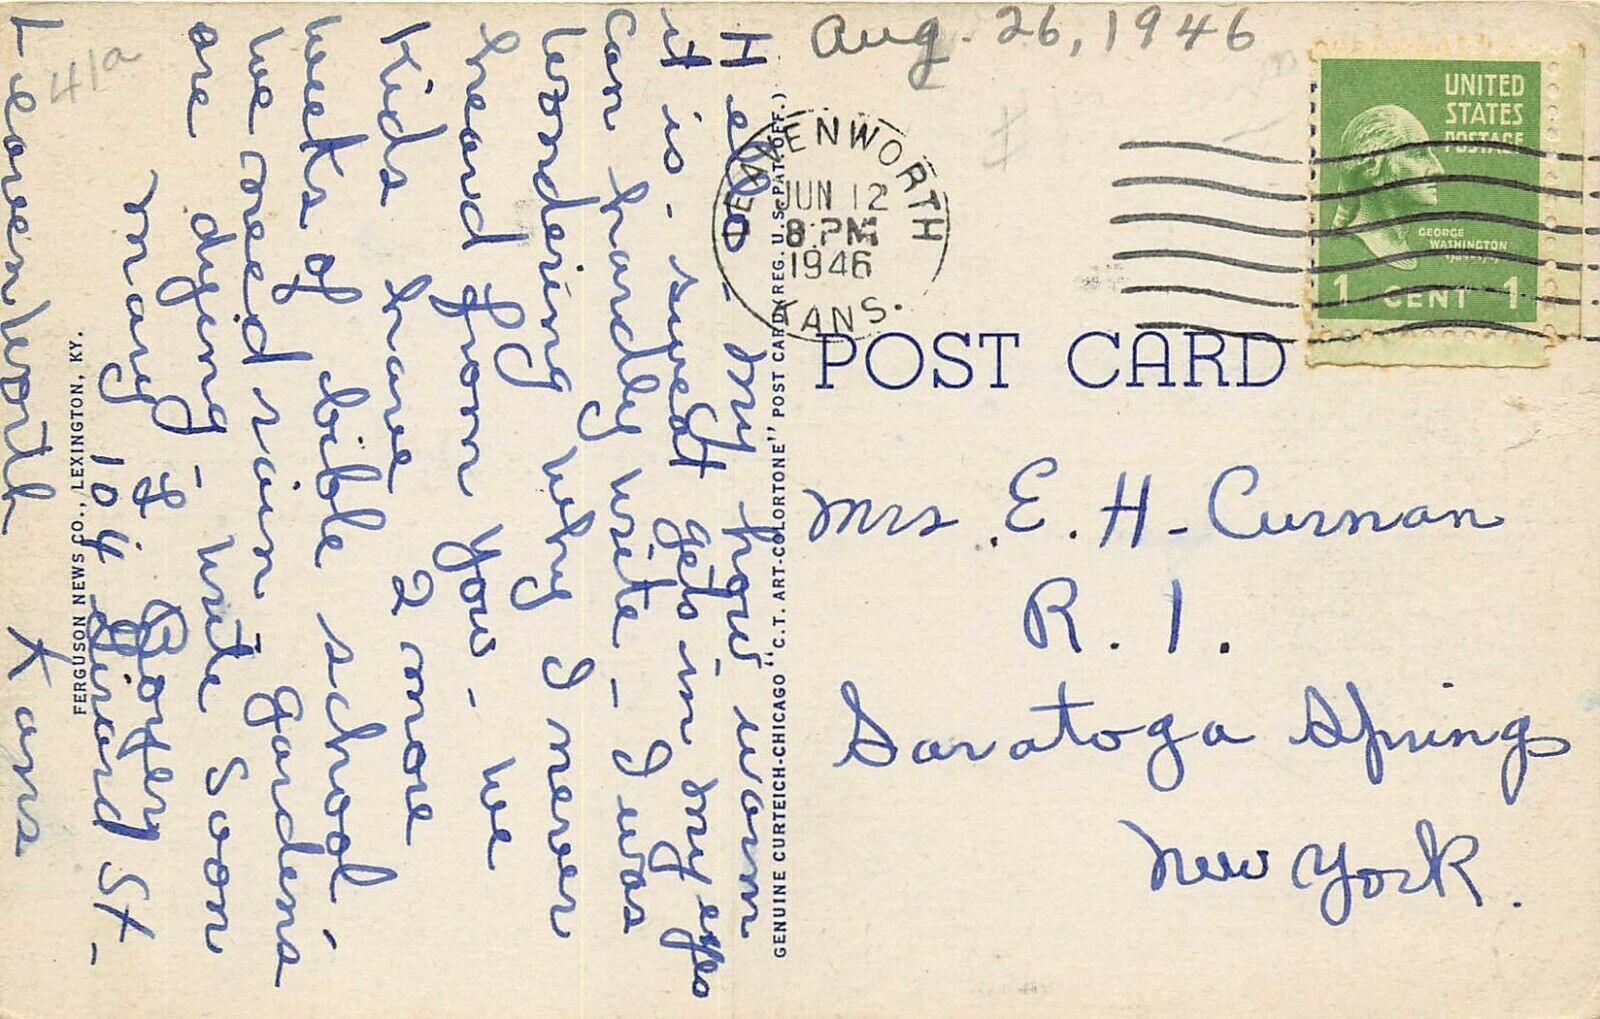 Aug. 26, 1946
41a
LEAVENWORTH
JUN 12
8 PM
1946
KANS.
UNITED
STATES
POSTAGE
GEORGE
WASHINGTON
1 CENT 1
POST CARD
Mrs. E. H. Curnan
R. 1.
Saratoga Springs
New York.
Hello - My how warm
it is - sweat gets in my eyes
can hardly write - I was
wondering why I never
heard from you - we
Kids have 2 more
weeks of bible school -
we need rain gardens
are dying - write soon
Mary F Rogers
104 Girard St -
Leavenworth Kans
GENUINE CURTEICH-CHICAGO "C.T. ART-COLORTONE" POST CARD (REG. U.S. PAT. OFF.)
FERGUSON NEWS CO., LEXINGTON, KY.